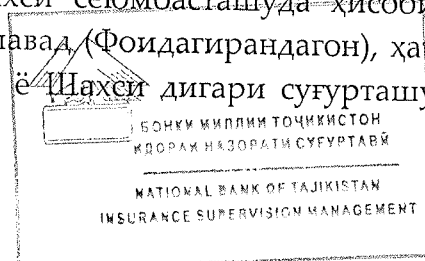 сеюмбасташуда ҳисоби
(Фоидагирандагон),
ё Шахси дигари суғурташу
БОНКИ МИЛЛИИ ТОҶИКИСТОН
ИДОРАИ НАЗОРАТИ СУҒУРТАВӢ
NATIONAL BANK OF TAJIKISTAN
INSURANCE SUPERVISION MANAGEMENT